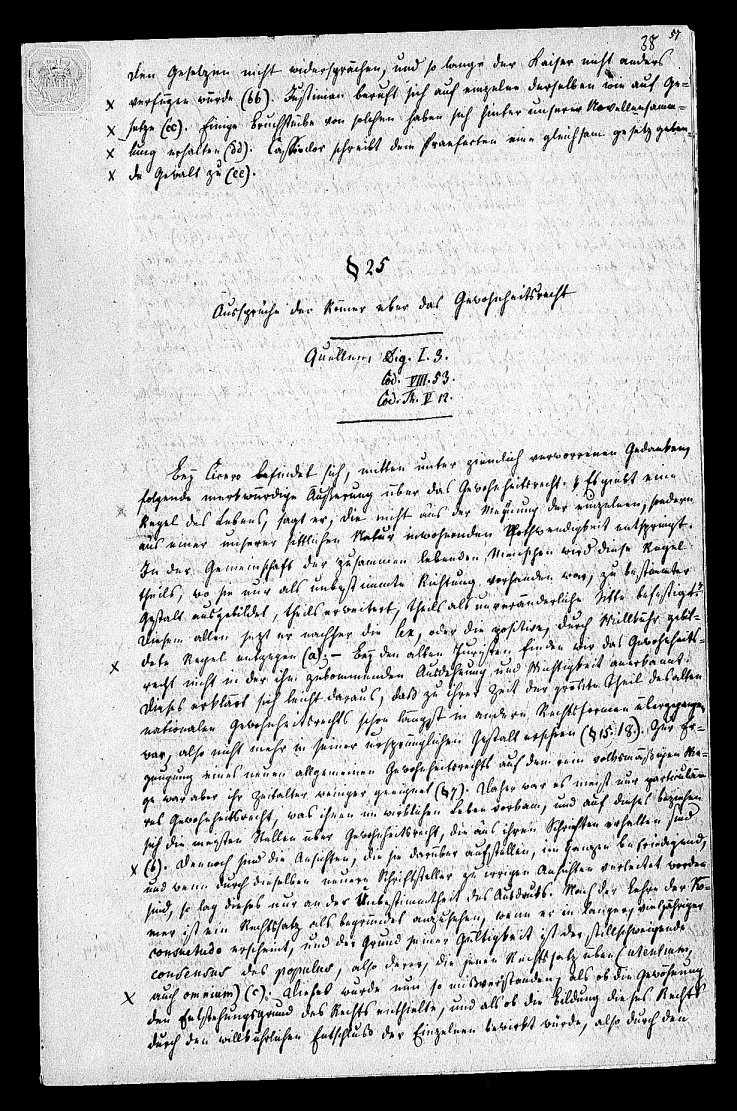 38 57
den Gesetzen nicht widersprächen, und so lange der Kaiser nicht anders
x verfügen würde (bb). Justinian beruft sich auf einzelne derselben wie auf Ge-
x setze (cc). Einige Bruchstücke von solchen haben sich hinter unserer Novellensamm-
x lung erhalten (dd). Cassiodor schreibt dem Praefecten eine gleichsam gesetzgeben-
x de Gewalt zu (ee).
§ 25
Aussprüche der Römer über das Gewohnheitsrecht
Quellen: Dig. I. 3.
Cod. VIII. 53.
Cod. Th. V. 12.
Bey Cicero befindet sich, mitten unter ziemlich verworrenen Gedanken,
folgende merkwürdige Äusserung über das Gewohnheitsrecht. Es giebt eine
x Regel des Lebens, sagt er, die nicht aus der Meynung der einzelnen, sondern
aus einer unserer sittlichen Natur inwohnenden Nothwendigkeit entspringt.
In der Gemeinschaft der zusammen lebenden Menschen wird diese Regel
theils, wo sie nur als unbestimmte Richtung vorhanden war, zu bestimmter
Gestalt ausgebildet, theils erweitert, theils als unveränderliche Sitte befestigt.
Diesem allen setzt er nachher die lex, oder die positive, durch Willkühr gebil-
x dete Regel entgegen (a). – Bey den alten Juristen finden wir das Gewohnheits-
recht nicht in der ihm zukommenden Ausdehnung und Wichtigkeit anerkannt.
Dieses erklärt sich leicht daraus, daß zu ihrer Zeit der größte Theil des alten
nationalen Gewohnheitsrechts schon längst in andere Rechtsformen übergegangen
war, also nicht mehr in seiner ursprünglichen Gestalt erschien (§ 15. 18.). Zur Er-
zeugung eines neuen allgemeinen Gewohnheitsrechts aus dem rein volksmäßigen We-
ge war aber ihr Zeitalter weniger geeignet (§ 7). Daher war es meist nur particulä-
res Gewohnheitsrecht, was ihnen im wirklichen Leben vorkam, und auf dieses beziehen
sich die meisten Stellen über Gewohnheitsrecht, die aus ihren Schriften erhalten sind
x (b). Dennoch sind die Ansichten, die sie darüber aufstellen, im Ganzen befriedigend,
und wenn durch dieselben neuere Schriftsteller zu irrigen Ansichten verleitet worden
sind, so lag dieses nur an der Unbestimmtheit des Ausdrucks. Nach der Lehre der Rö-
mer ist ein Rechtssatz als begründet anzusehen, wenn er in langer, vieljähriger
consuetudo erscheint, und der Grund seiner Gültigkeit ist der stillschweigende
consensus des populus, also derer, die jenen Rechtssatz üben (utentium,
x auch omnium) (c). Dieses wurde nun so misverstanden, als ob die Gewohnung
den Entstehungsgrund des Rechts enthielte, und als ob die Bildung dieses Rechts
durch den willkührlichen Entschluß der Einzelnen bewirkt würde, also durch den